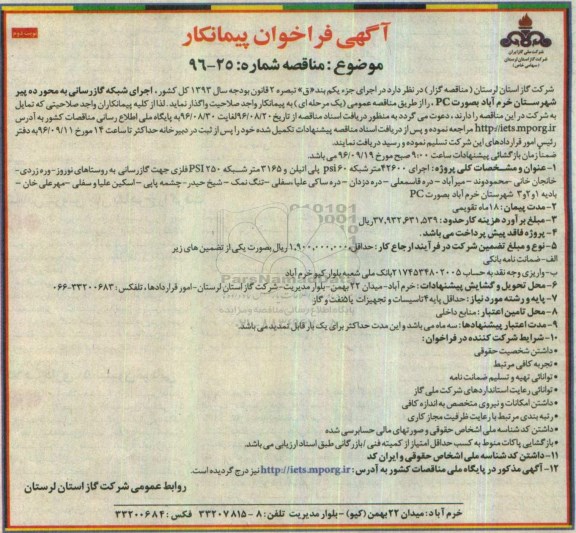 نوبت دوم
شرکت ملی گاز ایران
شرکت گاز استان لرستان
(سهامی خاص)
آگهی فراخوان پیمانکار
موضوع : مناقصه شماره: ۲۵-۹۶
شرکت گاز استان لرستان (مناقصه گزار) در نظر دارد در اجرای جزء یکم بند «ق» تبصره ۲ قانون بودجه سال ۱۳۹۳ کل کشور ، اجرای شبکه گازرسانی به محور ده پیر
شهرستان خرم آباد بصورت PC ، را از طریق مناقصه عمومی (یک مرحله ای) به پیمانکار واجد صلاحیت واگذار نماید . لذا از کلیه پیمانکاران واجد صلاحیتی که تمایل
به شرکت در این مناقصه را دارند ، دعوت می گردد به منظور دریافت اسناد مناقصه از تاریخ ۹۶/۰۸/۲۰ لغایت ۹۶/۰۸/۳۰ به پایگاه ملی اطلاع رسانی مناقصات کشور به آدرس
http://iets.mporg.ir مراجعه نموده و پس از دریافت اسناد مناقصه پیشنهادات تکمیل شده خود را پس از ثبت در دبیرخانه حداکثر تا ساعت ۱۴ مورخ ۹۶/۰۹/۱۱ به دفتر
رئیس امور قراردادهای این شرکت تسلیم نموده و رسید دریافت نمایند.
ضمنا زمان بازگشائی پیشنهادات ساعت ۹:۰۰ صبح مورخ ۹۶/۰۹/۱۹ می باشد.
۱-عنوان و مشخصات کلی پروژه : اجرای ۴۲۶۰۰ متر شبکه psi ۶۰ پلی اتیلن و ۳۱۶۵ متر شبکه PSI ۲۵۰ فلزی جهت گازرسانی به روستاهای نوروز-وره زردی-
خانجان خانی -محمودوند - میرآباد - دره قاسمعلی - دره دزدان - دره ساکی علیا سفلی -تنگ نمک - شیخ حیدر - چشمه پاپی - اسکین علیا و سفلی -مهرعلی خان -
بادیه ۱و۲و۳ شهرستان خرم آباد بصورت PC
۲-مدت پیمان : ۱۸ماه تقویمی
۳-مبلغ برآورد هزینه کار حدود : ۳۷,۹۳۲,۶۳۱,۵۳۹ ریال
۴- پروژه فاقد پیش پرداخت می باشد .
۵-نوع و مبلغ تضمین شرکت در فرآیند ارجاع کار : حداقل ۱,۹۰۰,۰۰۰,۰۰۰ ریال بصورت یکی از تضمین های زیر
الف-ضمانت نامه بانکی
ب-واریزی وجه نقد به حساب ۲۱۷۴۵۳۴۸۰۲۰۰۵ بانک ملی شعبه بلوار کیو خرم آباد
۶- محل تحویل و گشایش پیشنهادات : خرم آباد-میدان ۲۲ بهمن-بلوار مدیریت- شرکت گاز استان لرستان-امور قراردادها ، تلفکس : ۳۳۲۰۰۶۸۳-۰۶۶
۷- پایه و رشته مورد نیاز : حداقل پایه ۴ تاسیسات و تجهیزات یا ۵ نفت و گاز
۸- محل تامین اعتبار : منابع داخلی
۹- مدت اعتبار پیشنهادها : سه ماه می باشد و این مدت حداکثر برای یک بار قابل تمدید می باشد.
۱۰- شرایط شرکت کننده در فراخوان :
•داشتن شخصیت حقوقی
• تجربه کافی مرتبط
• توانائی تهیه و تسلیم ضمانت نامه
• توانائی رعایت استانداردهای شرکت ملی گاز
•داشتن امکانات و نیروی متخصص به اندازه کافی
•رتبه بندی مرتبط با رعایت ظرفیت مجاز کاری
• داشتن کد شناسه ملی اشخاص حقوقی و صورتهای مالی حسابرسی شده
• بازگشایی پاکات منوط به کسب حداقل امتیاز از کمیته فنی /بازرگانی طبق اسناد ارزیابی می باشد.
۱۱-داشتن کد شناسه ملی اشخاص حقوقی و ایران کد
۱۲- آگهی مذکور در پایگاه ملی مناقصات کشور به آدرس : http://iets.mporg.ir نیز درج گردیده است.
روابط عمومی شرکت گاز استان لرستان
خرم آباد : میدان ۲۲ بهمن (کیو) - بلوار مدیریت تلفن : ۸ - ۳۳۲۰۷۸۱۵ فکس : ۳۳۲۰۰۶۸۴